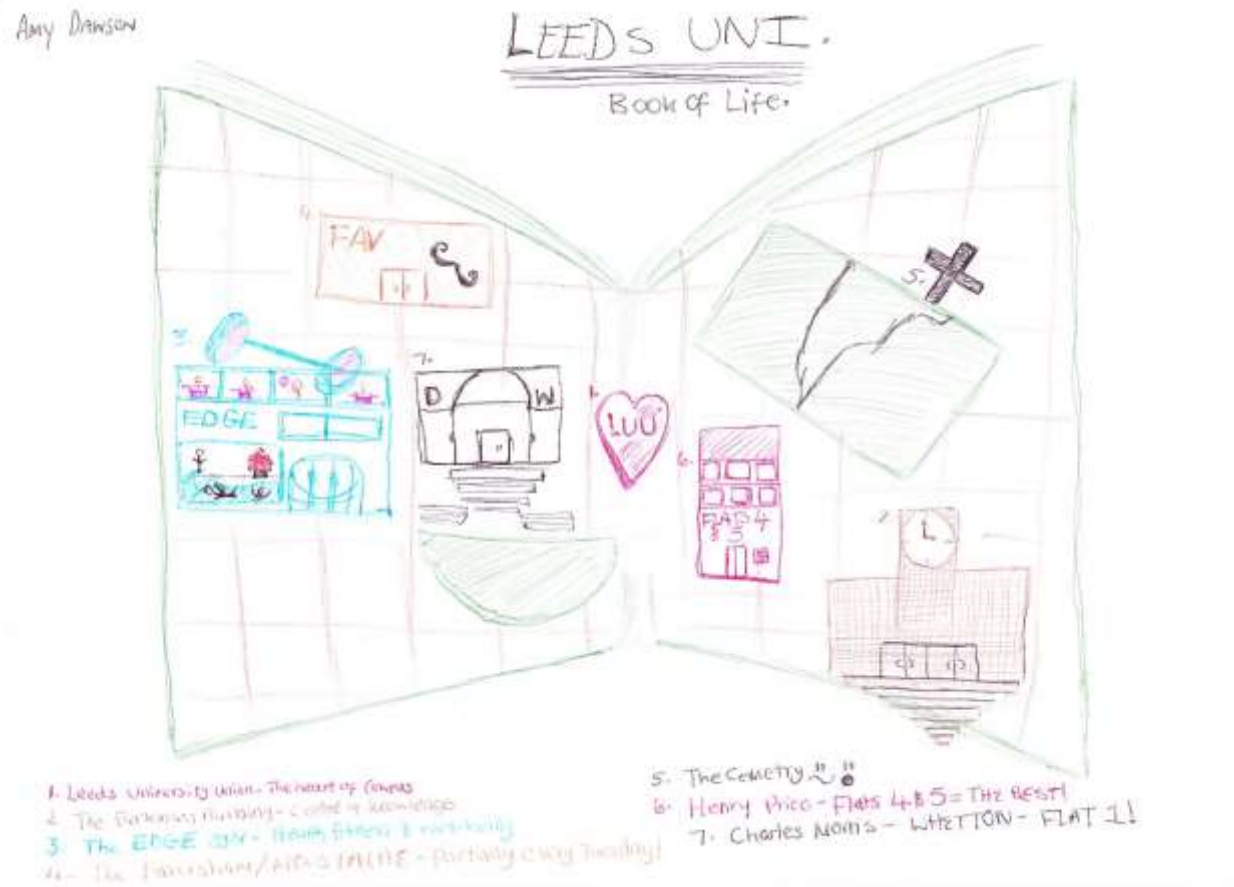 AMY DAWSON
LEEDS UNI.
Book of Life.
4.
FAV
5.
3
7.
EDGE
D W
1.
LUU
6.
FLATS 4
& 5
1. Leeds University Union - The heart of Campus
2 The Building - of knowledge
3. The EDGE gym - Health, fitness & well-being
4. The Faversham/ - Partying every Tuesday!
5. The Cemetry
6. Henry Price - Flats 4 & 5 = THE BEST!
7. Charles Morris - WHETTON - FLAT 1!